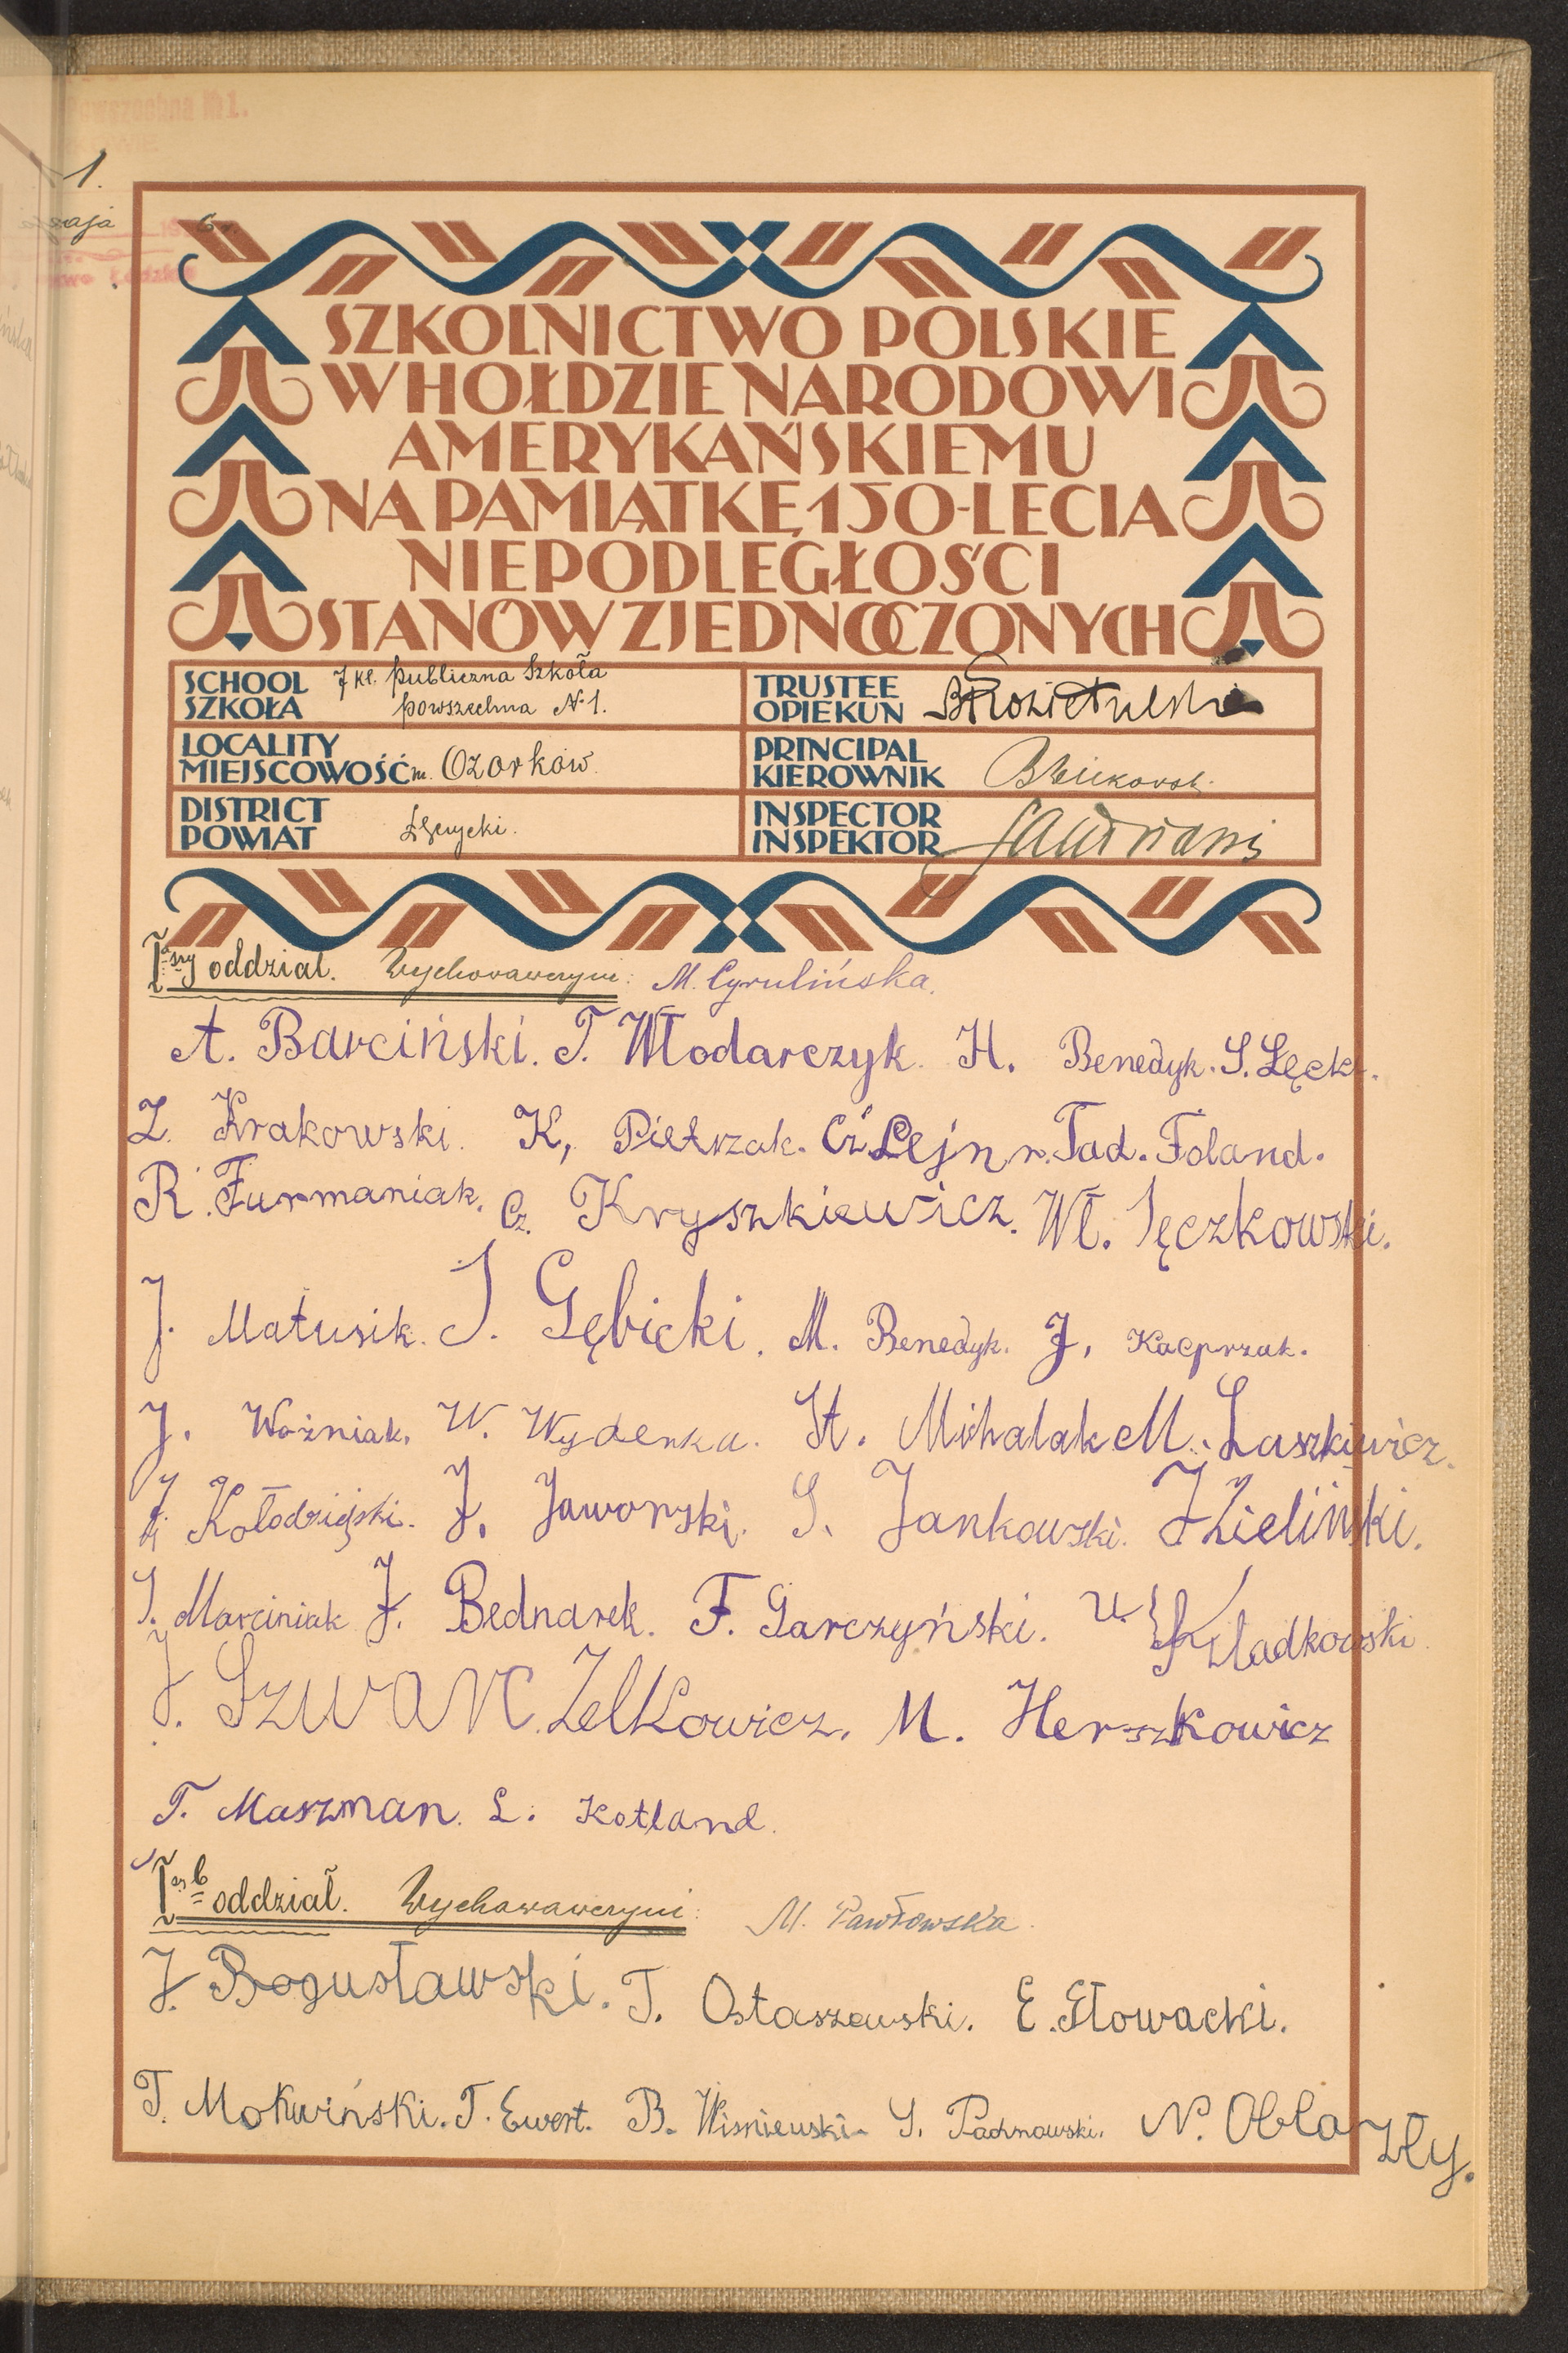 1.
SZKOLNICTWO POLSKIE
W HOŁDZIE NARODOWI
AMERYKAŃSKIEMU
NA PAMIĄTKĘ 150-LECIA
NIEPODLEGŁOŚCI
STANÓW ZJEDNOCZONYCH
SCHOOL
SZKOŁA
7 kl. publiczna Szkoła
powszechna N 1.
TRUSTEE
OPIEKUN
LOCALITY
MIEJSCOWOŚĆ m. Ozorków
PRINCIPAL
KIEROWNIK
DISTRICT
POWIAT
Łęczycki.
INSPECTOR
INSPEKTOR
I oddział. Wychowawczyni: M. Cyrulińska.
A. Barciński. T. Włodarczyk. H. Benedyk. S. Lęcki.
Z. Krakowski. K, Pietrzak. Cz Lejn r. Tad. Foland.
R. Furmaniak. Cz. Kryszkiewicz. Wł. Jęczkowski.
J. Matusik. J. Gębicki. M. Benedyk. J, Kacprzak.
J. Woźniak. W. Wydenka. St. Michalak M. Laszkiewicz.
Kołodziejski. J. Jaworski. S. Jankowski. J Zieliński.
J. Marciniak J. Bednarek. F. Garczyński. Składkowski
J. Szwarc. Zelkowicz. M. Herszkowicz
T. Maszman. L. Kotland.
I b oddział. Wychowawczyni: M. Pawłowska.
J. Bogusławski. T. Ostaszewski. E. Głowacki.
T. Mokwiński. T. Ewert. B. Wisniewski. S. Pachnowski. N. Obłazły.